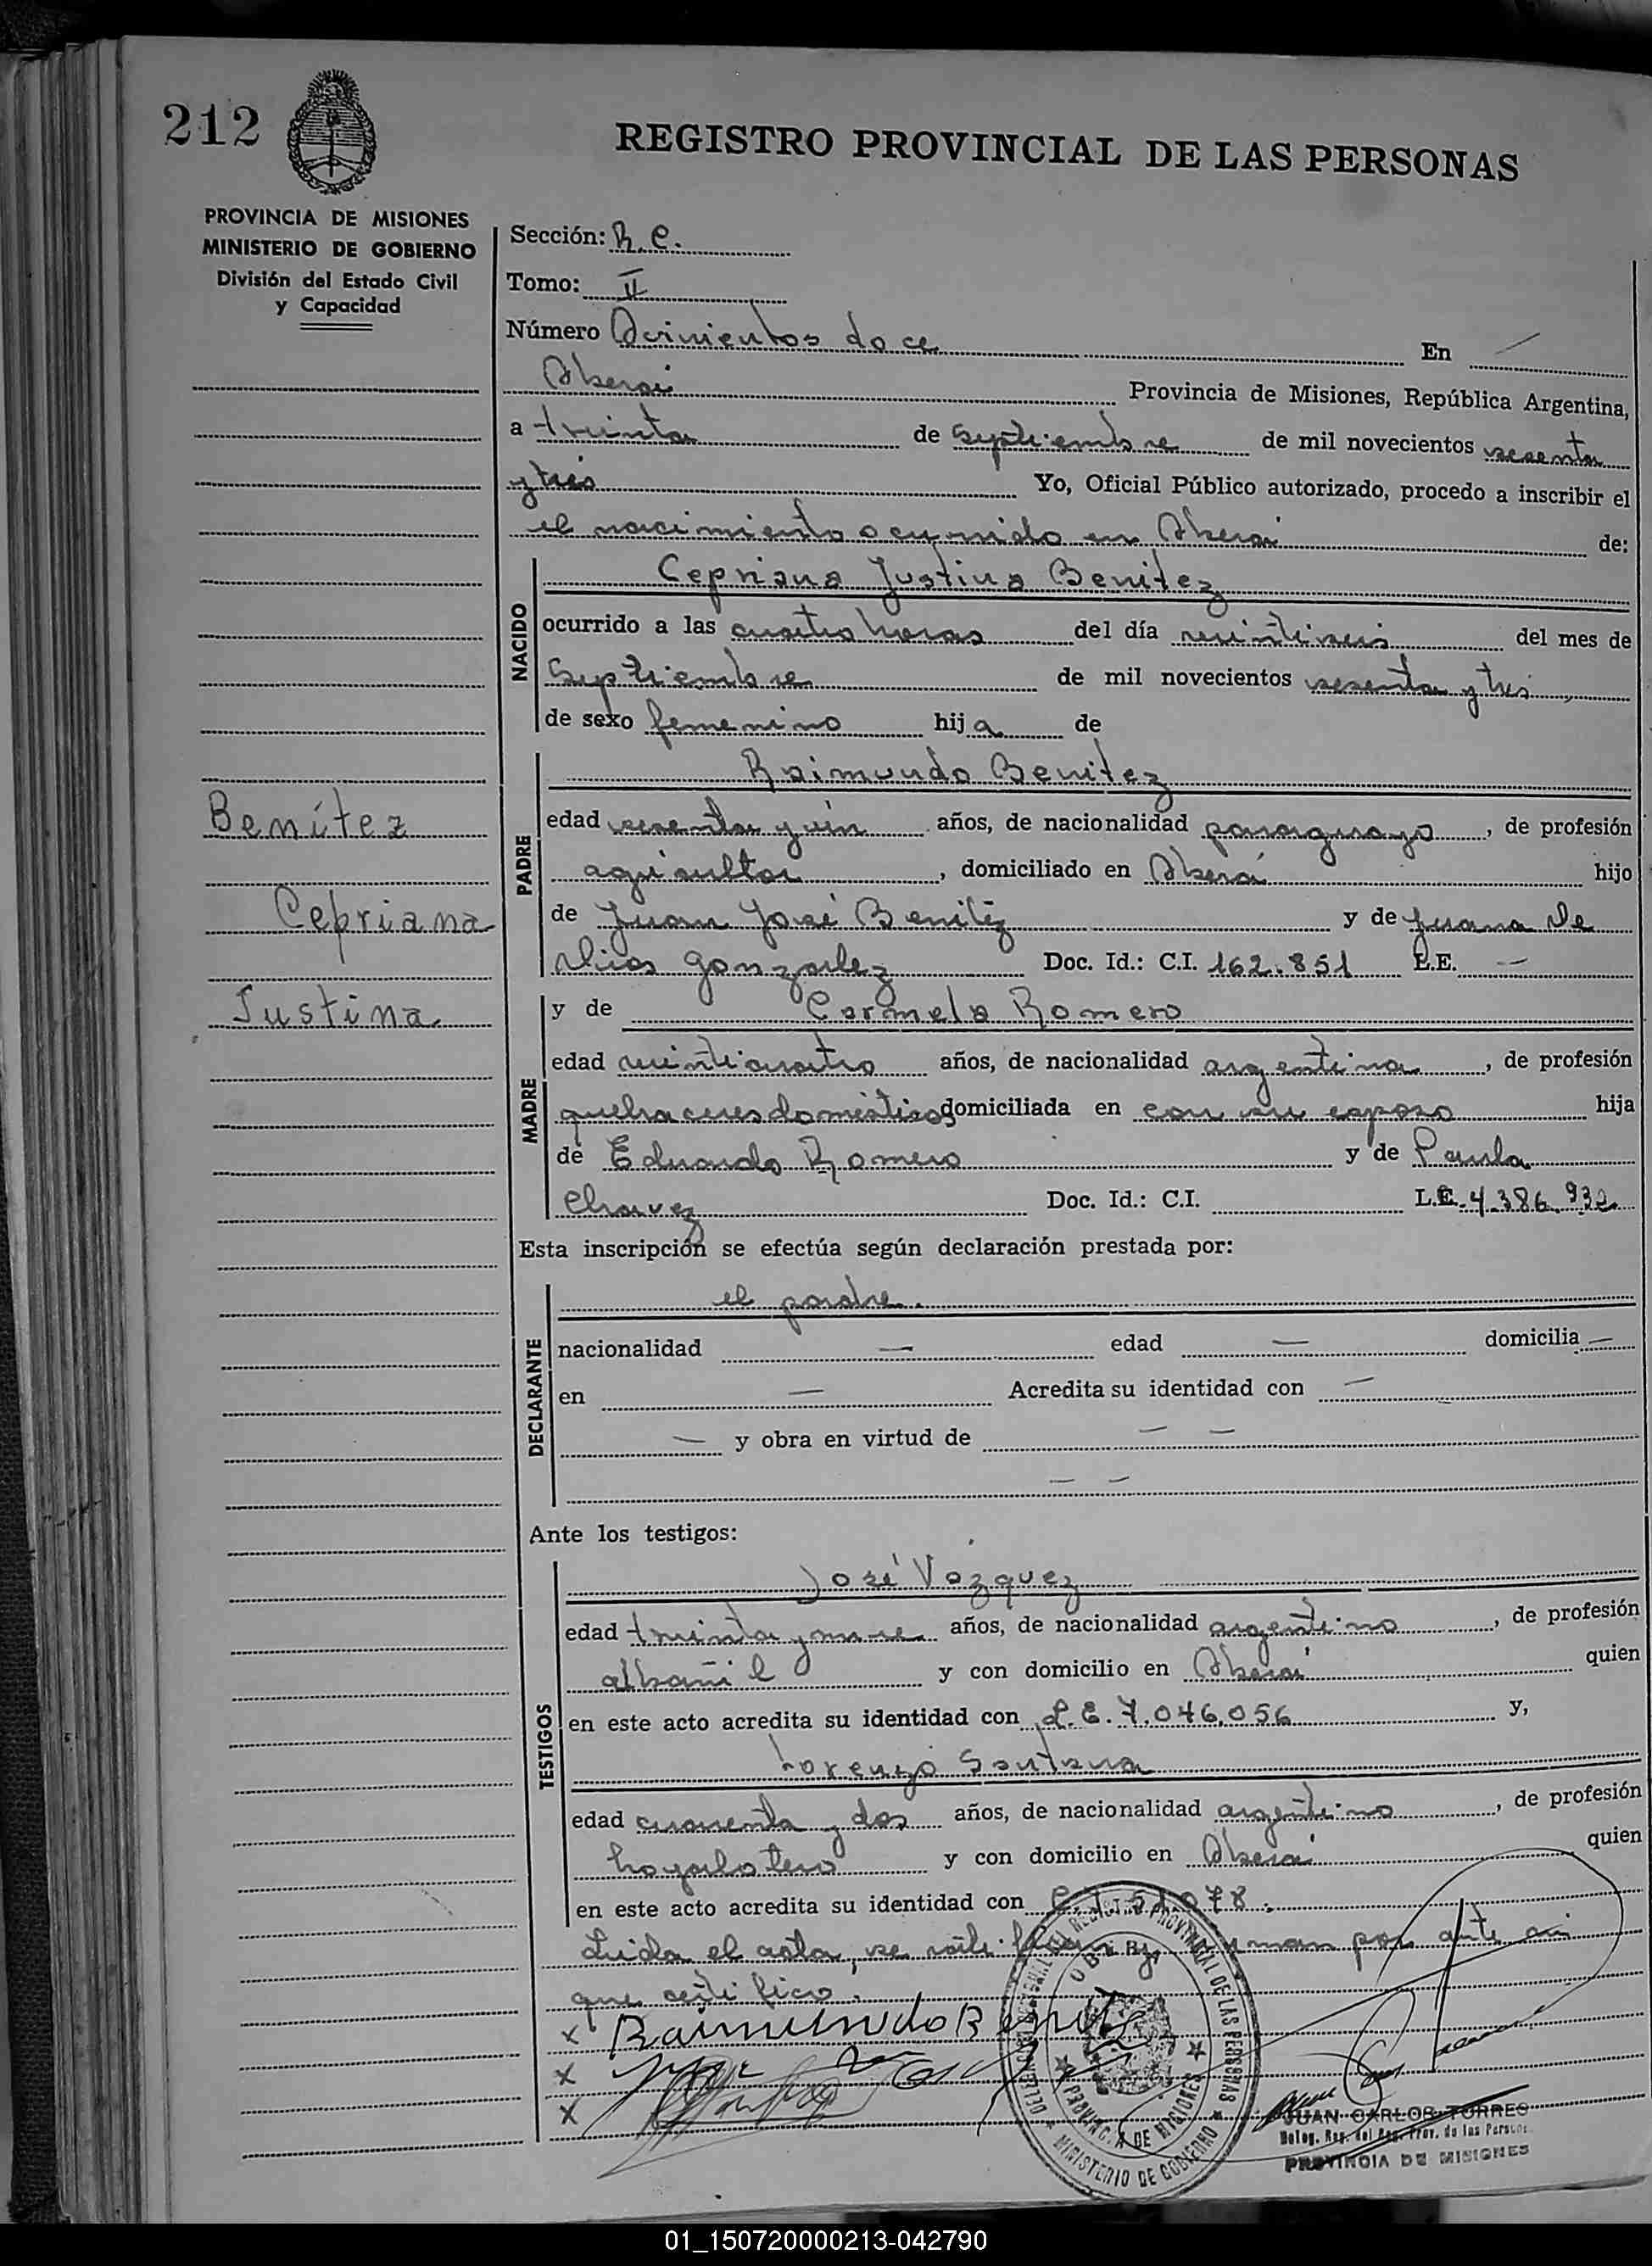 212
REGISTRO PROVINCIAL DE LAS PERSONAS
PROVINCIA DE MISIONES
MINISTERIO DE GOBIERNO
División del Estado Civil
y Capacidad
Sección: R. C.
Tomo: II
Número Quinientos doce En
Oberá Provincia de Misiones, República Argentina,
a treinta de septiembre de mil novecientos sesenta
y tres Yo, Oficial Público autorizado, procedo a inscribir el
el nacimiento ocurrido en Oberá de:
NACIDO
Cepriana Justina Benitez
ocurrido a las cuatro horas del día veintiseis del mes de
septiembre de mil novecientos sesenta y tres,
de sexo femenino hija de
PADRE
Raimundo Benitez
edad sesenta y un años, de nacionalidad paraguayo, de profesión
agricultor, domiciliado en Oberá hijo
de Juan José Benitez y de Juana De
Dios Gonzalez Doc. Id.: C.I. 162.851 L.E. —
Benítez
Cepriana
Justina
MADRE
y de Carmela Romero
edad veinticuatro años, de nacionalidad argentina, de profesión
quehaceres domésticos domiciliada en con su esposo hija
de Eduardo Romero y de Paula
Chavez Doc. Id.: C.I. L.E. 4.386.932
Esta inscripción se efectúa según declaración prestada por:
DECLARANTE
el padre.
nacionalidad — edad — domicilia —
en — Acredita su identidad con —
— y obra en virtud de — —
— —
Ante los testigos:
TESTIGOS
José Vázquez
edad treinta y nueve años, de nacionalidad argentino, de profesión
albañil y con domicilio en Oberá quien
en este acto acredita su identidad con L.E. 7.046.056 y,
Lorenzo Santana
edad cuarenta y dos años, de nacionalidad argentino, de profesión
hojalatero y con domicilio en Oberá quien
en este acto acredita su identidad con
Leida el acta, se por ante mi
que certifico.
x Raimundo Benitez
x
x
REGISTRO PROVINCIAL DE LAS PERSONAS
OBERA
PROVINCIA DE MISIONES
MINISTERIO DE GOBIERNO
JUAN CARLOS TORRES
Deleg. Reg. del Reg. Prov. de las Personas
PROVINCIA DE MISIONES
01_150720000213-042790